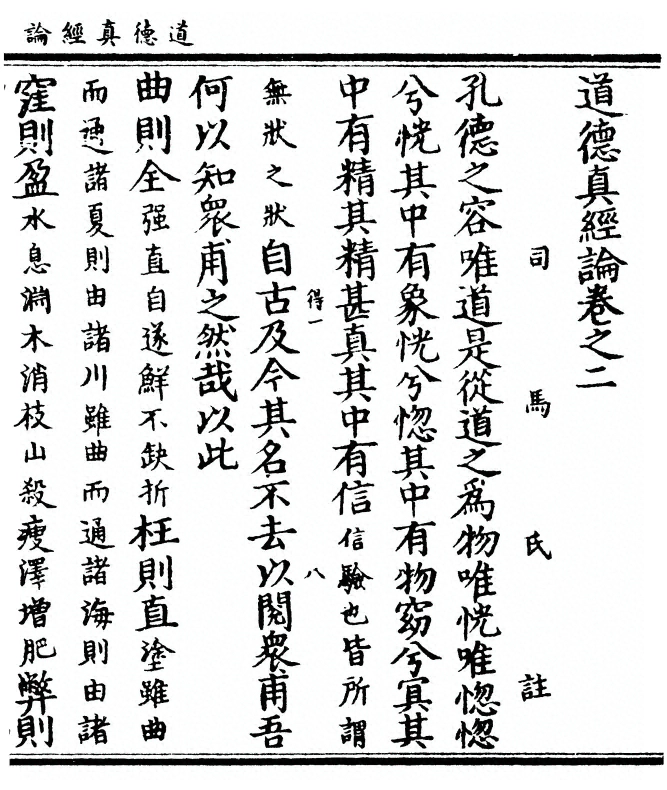 道德真經論
道德真經論卷之二
司馬氏註
孔德之容唯道是從道之爲物唯恍唯惚惚
兮恍其中有象恍兮惚其中有物窈兮冥其
中有精其精甚真其中有信信驗也皆所謂
得一
八
無狀之狀自古及今其名不去以閱衆甫吾
何以知衆甫之然哉以此
曲則全强直自遂鮮不缺折枉則直塗雖曲
而通諸夏則由諸川雖曲而通諸海則由諸
窪則盈水息淵木消枝山殺瘦澤增肥弊則